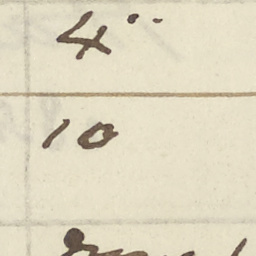 4"
10